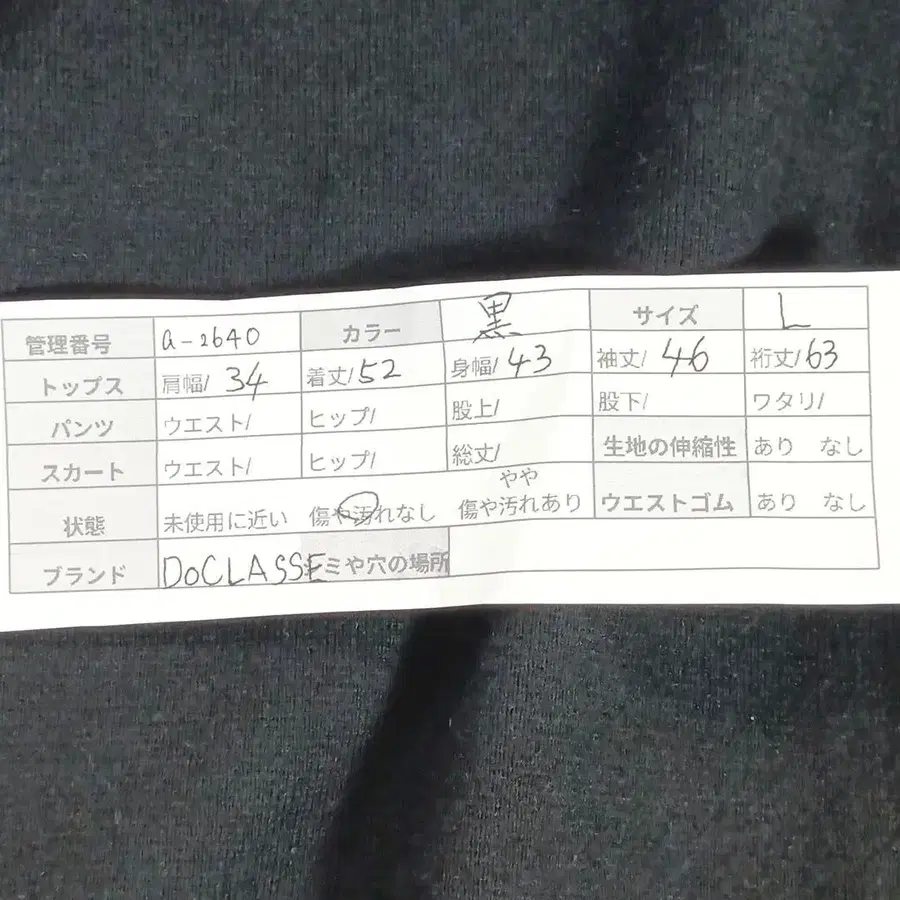 管理番号 a-2640 カラー 黒 サイズ L
トップス 肩幅/ 34 着丈/ 52 身幅/ 43 袖丈/ 46 裄丈/ 63
パンツ ウエスト/ ヒップ/ 股上/ 股下/ ワタリ/
スカート ウエスト/ ヒップ/ 総丈/ 生地の伸縮性 あり なし
状態 未使用に近い 傷や汚れなし やや傷や汚れあり ウエストゴム あり なし
ブランド DoCLASSE シミや穴の場所